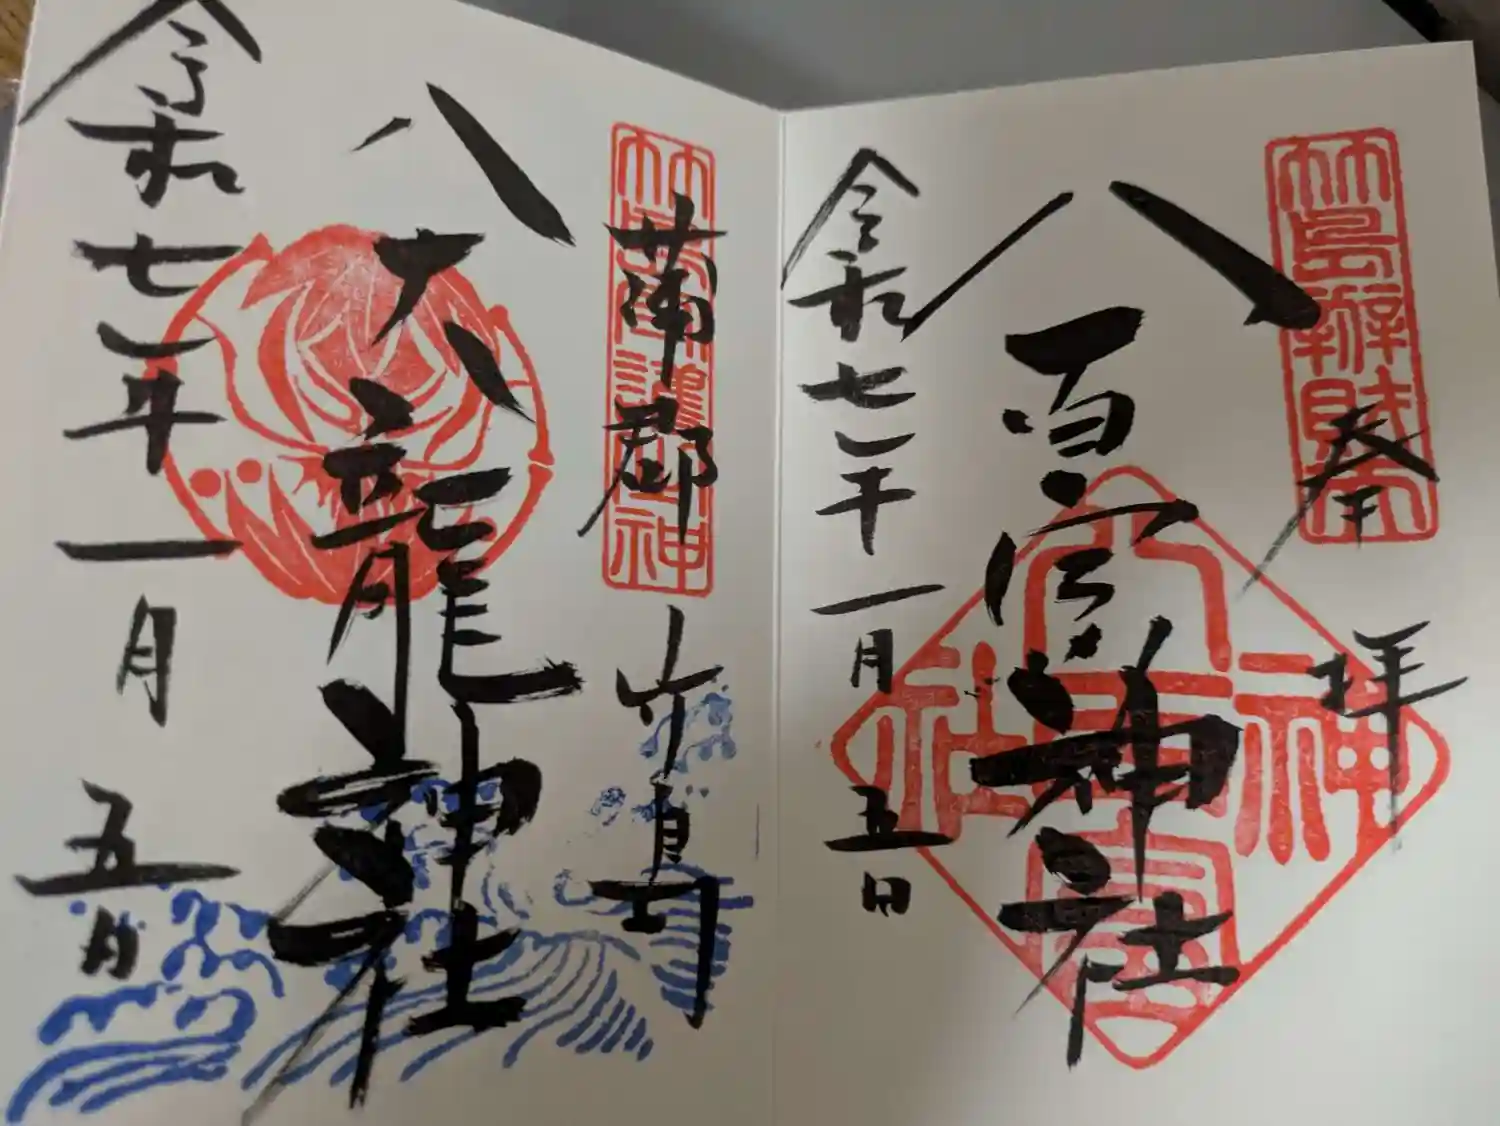 竹島辨財天
奉拝
八百富神社
八百富神社
令和七年一月五日
蒲郡 竹島
八大龍神社
令和七年一月五日